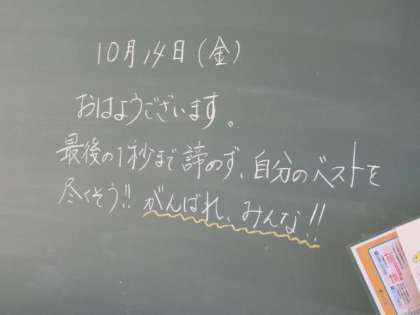 10月14日(金)
おはようございます。
最後の1秒まで諦めず、自分のベストを
尽くそう!! がんばれ、みんな!!